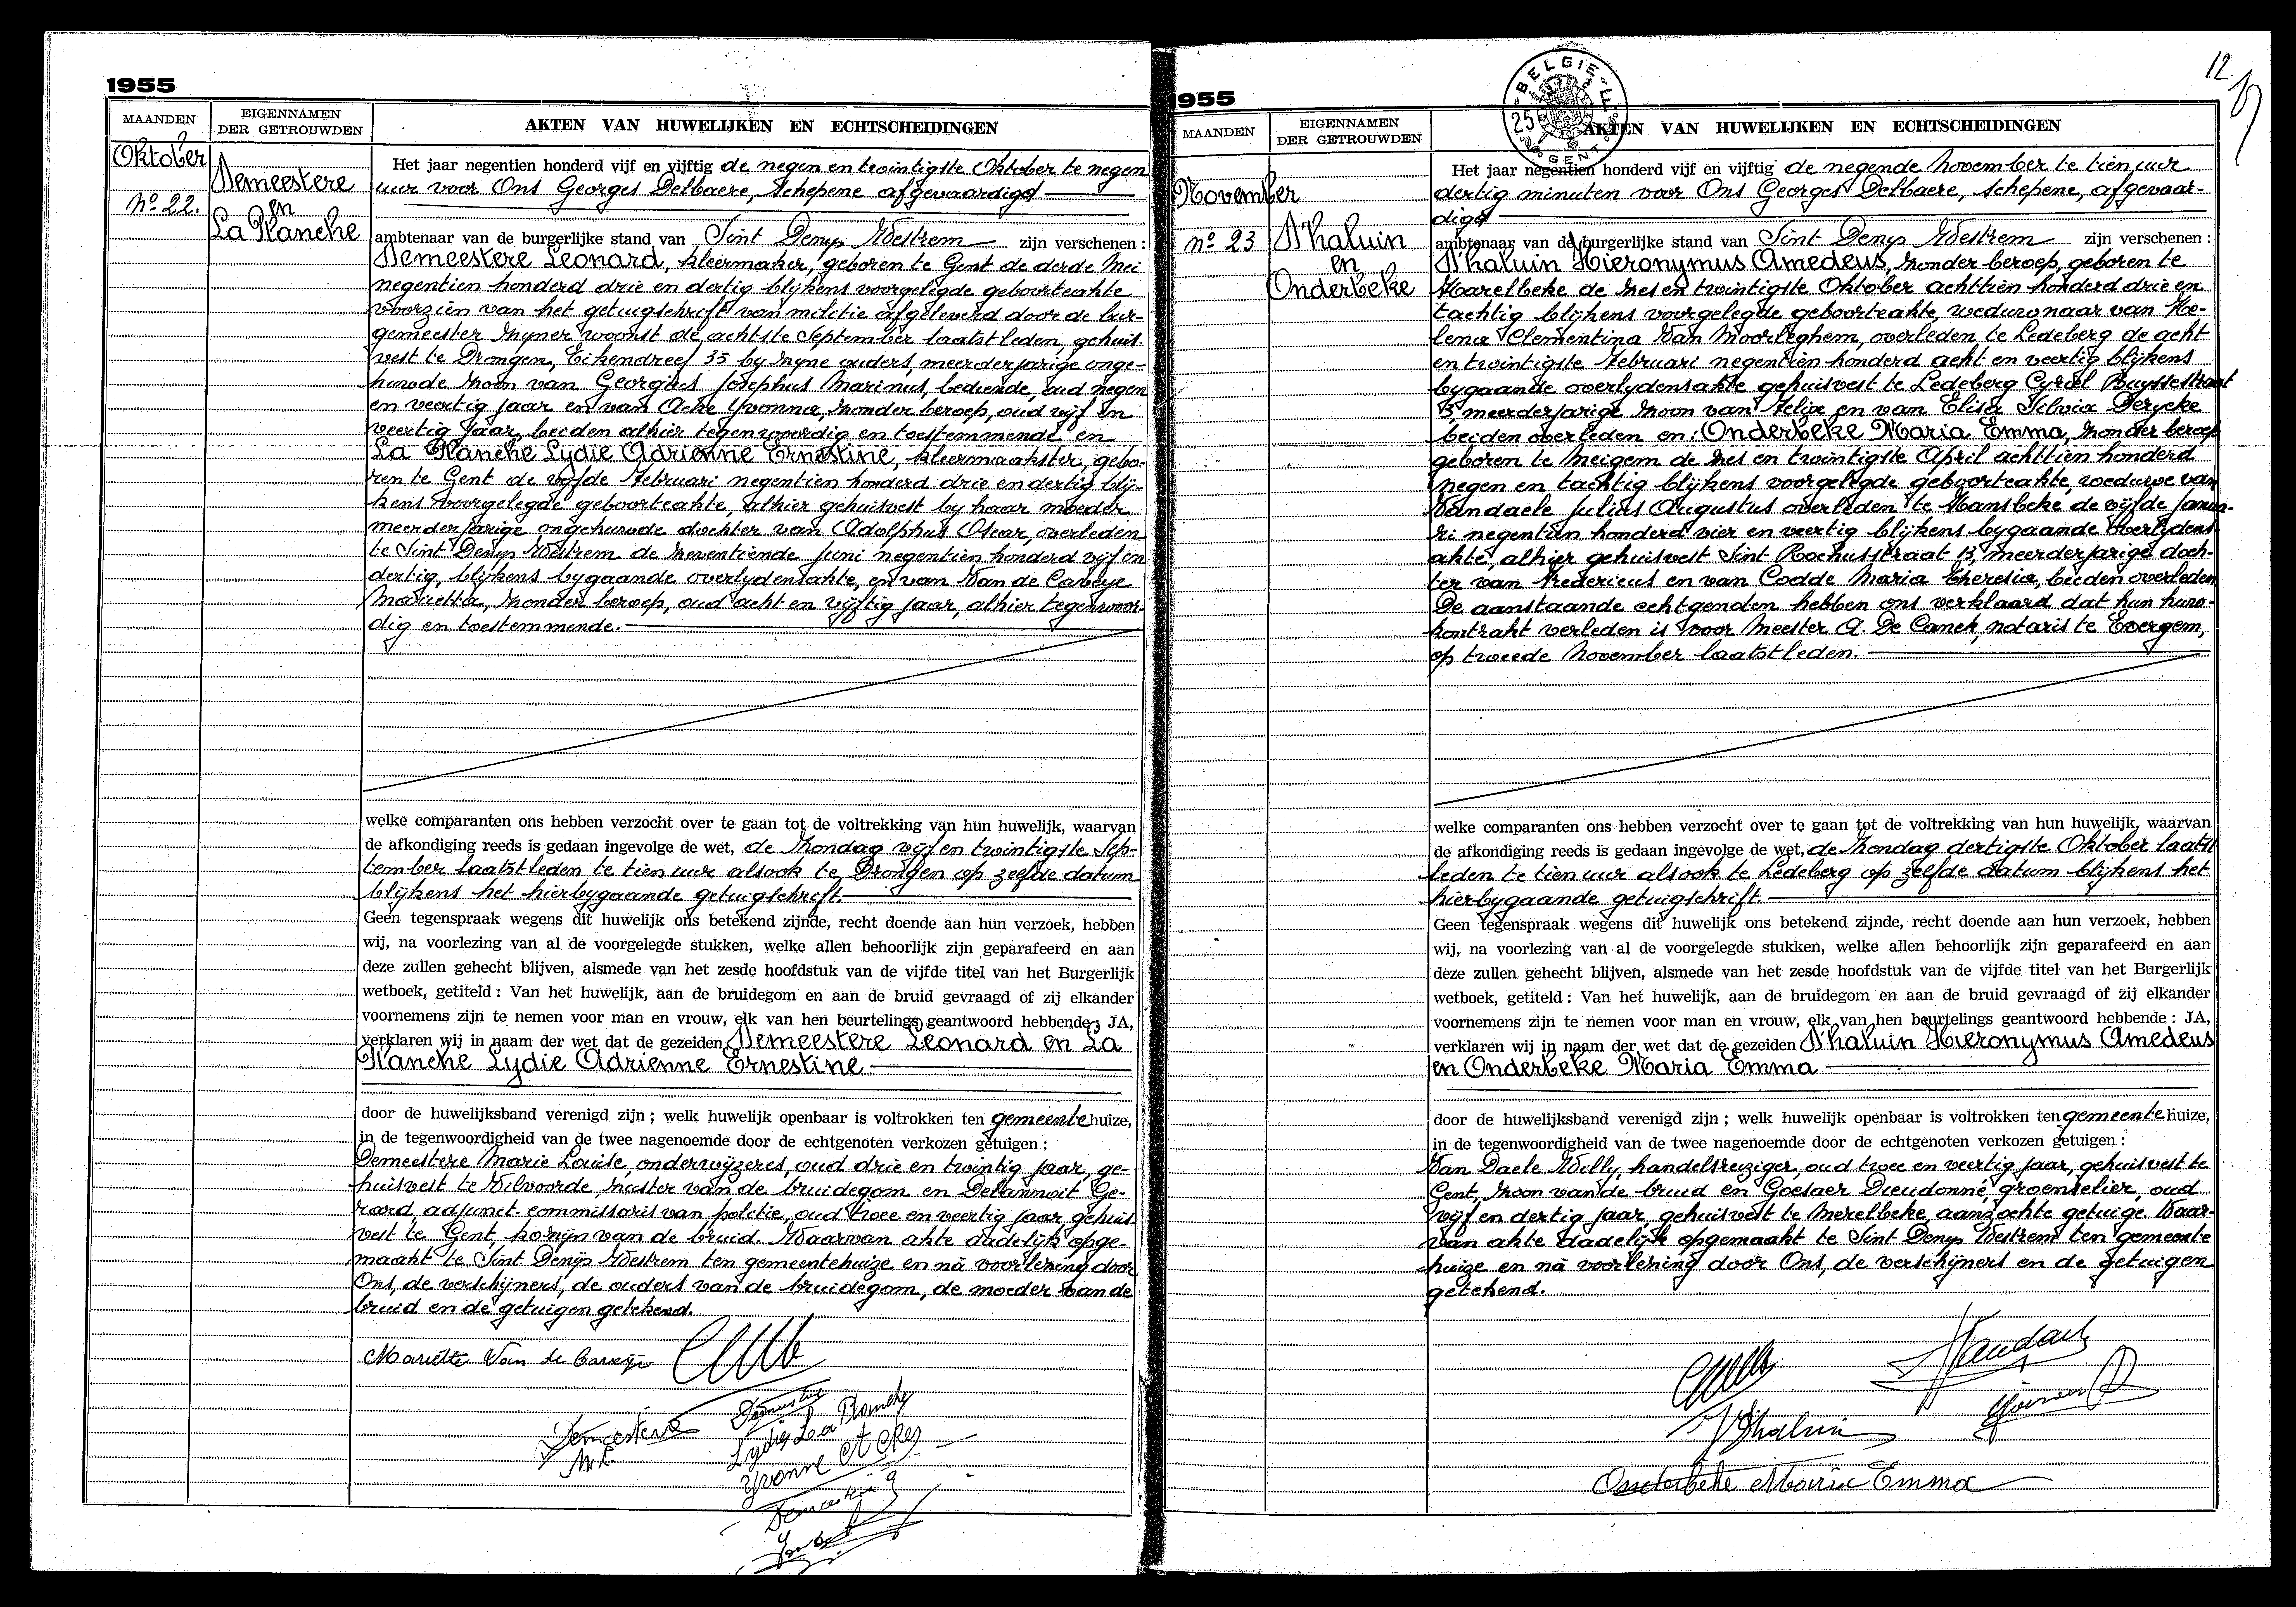 1955
MAANDEN
EIGENNAMEN
DER GETROUWDEN
AKTEN VAN HUWELIJKEN EN ECHTSCHEIDINGEN
Oktober
No 22.
Demeestere
en
La Planche
Het jaar negentien honderd vijf en vijftig de negen en twintigste Oktober te negen
uur voor Ons Georges Delbaere, Schepene afgevaardigd
ambtenaar van de burgerlijke stand van Sint Denys Westrem zijn verschenen :
Demeestere Leonard, kleermaker, geboren te Gent de derde Mei
negentien honderd drie en dertig blijkens voorgelegde geboorteakte
voorzien van het getuigschrift van militie afgeleverd door de bur-
gemeester zyner woonst de achtste September laatstleden, gehuis-
vest te Drongen, Eikendreef 35 by zyne ouders, meerderjarige onge-
huwde zoon van Georgius Josephus Marinus, bediende, oud negen
en veertig jaar en van Acke Yvonna, zonder beroep, oud vijf en
veertig jaar, beiden alhier tegenwoordig en toestemmende en
La Planche Lydie Adrienne Ernestine, kleermaakster, gebo-
ren te Gent de vijfde Februari negentien honderd drie en dertig blij-
kens voorgelegde geboorteakte, alhier gehuisvest by haar moeder
meerderjarige ongehuwde dochter van Adolphus Oscar, overleden
te Sint Denys Westrem de zeventiende Juni negentien honderd vijf en
dertig, blijkens bygaande overlydensakte, en van Van de Caveye
Marietta, zonder beroep, oud acht en vijftig jaar, alhier tegenwoor-
dig en toestemmende.
welke comparanten ons hebben verzocht over te gaan tot de voltrekking van hun huwelijk, waarvan
de afkondiging reeds is gedaan ingevolge de wet, de Zondag vijf en twintigste Sep-
tember laatstleden te tien uur alsook te Drongen op zelfde datum
blijkens het hierbygaande getuigschrift.
Geen tegenspraak wegens dit huwelijk ons betekend zijnde, recht doende aan hun verzoek, hebben
wij, na voorlezing van al de voorgelegde stukken, welke allen behoorlijk zijn geparafeerd en aan
deze zullen gehecht blijven, alsmede van het zesde hoofdstuk van de vijfde titel van het Burgerlijk
wetboek, getiteld : Van het huwelijk, aan de bruidegom en aan de bruid gevraagd of zij elkander
voornemens zijn te nemen voor man en vrouw, elk van hen beurtelings geantwoord hebbende ; JA,
verklaren wij in naam der wet dat de gezeiden Demeestere Leonard en La
Planche Lydie Adrienne Ernestine
door de huwelijksband verenigd zijn ; welk huwelijk openbaar is voltrokken ten gemeentehuize,
in de tegenwoordigheid van de twee nagenoemde door de echtgenoten verkozen getuigen :
Demeestere Marie Louise, onderwijzeres, oud drie en twintig jaar, ge-
huisvest te Vilvoorde, zuster van de bruidegom en Delannoit Ge-
rard, adjunct-commissaris van politie, oud twee en veertig jaar gehuis-
vest te Gent, kozijn van de bruid. Waarvan akte dadelijk opge-
maakt te Sint Denijs Westrem ten gemeentehuize en na voorlezing door
Ons, de verschijners, de ouders van de bruidegom, de moeder van de
bruid en de getuigen getekend.
Mariette Van de Caveye
Demeestere
M.L.
Lydie La Planche
Yvonne Acke
1955
12
BELGIE
25
GENT
MAANDEN
EIGENNAMEN
DER GETROUWDEN
AKTEN VAN HUWELIJKEN EN ECHTSCHEIDINGEN
November
no 23
D'haluin
en
Onderbeke
Het jaar negentien honderd vijf en vijftig de negende November te tien uur
dertig minuten voor Ons Georges Delbaere, Schepene, afgevaar-
digd
ambtenaar van de burgerlijke stand van Sint Denys Westrem zijn verschenen :
D'haluin Hieronymus Amedeus, zonder beroep, geboren te
Harelbeke de zes en twintigste Oktober achttien honderd drie en
tachtig blijkens voorgelegde geboorteakte, weduwnaar van He-
lena Clementina Van Moorleghem, overleden te Ledeberg de acht
en twintigste Februari negentien honderd acht en veertig blijkens
bygaande overlydensakte gehuisvest te Ledeberg Cyriel Buyssestraat
13, meerderjarige zoon van Felix en van Elisa Silvia Derycke
beiden overleden en : Onderbeke Maria Emma, zonder beroep
geboren te Meigem de zes en twintigste April achttien honderd
negen en tachtig blijkens voorgelegde geboorteakte, weduwe van
Vandaele Julius Augustus overleden te Hansbeke de vijfde Janua-
ri negentien honderd vier en veertig blijkens bygaande overlydens-
akte, alhier gehuisvest Sint Rochusstraat 13, meerderjarige doch-
ter van Fredericus en van Codde Maria Theresia, beiden overleden.
De aanstaande echtgenoten hebben ons verklaard dat hun huw-
kontrakt verleden is voor Meester A. De Canck, notaris te Evergem,
op tweede November laatstleden.
welke comparanten ons hebben verzocht over te gaan tot de voltrekking van hun huwelijk, waarvan
de afkondiging reeds is gedaan ingevolge de wet, de Zondag dertigste Oktober laatst
leden te tien uur alsook te Ledeberg op zelfde datum blijkens het
hierbygaande getuigschrift.
Geen tegenspraak wegens dit huwelijk ons betekend zijnde, recht doende aan hun verzoek, hebben
wij, na voorlezing van al de voorgelegde stukken, welke allen behoorlijk zijn geparafeerd en aan
deze zullen gehecht blijven, alsmede van het zesde hoofdstuk van de vijfde titel van het Burgerlijk
wetboek, getiteld : Van het huwelijk, aan de bruidegom en aan de bruid gevraagd of zij elkander
voornemens zijn te nemen voor man en vrouw, elk van hen beurtelings geantwoord hebbende : JA,
verklaren wij in naam der wet dat de gezeiden D'haluin Hieronymus Amedeus
en Onderbeke Maria Emma
door de huwelijksband verenigd zijn ; welk huwelijk openbaar is voltrokken ten gemeentehuize,
in de tegenwoordigheid van de twee nagenoemde door de echtgenoten verkozen getuigen :
Van Daele Willy, handelsreiziger, oud twee en veertig jaar, gehuisvest te
Gent, zoon van de bruid en Goesaer Dieudonné, groenselier, oud
vijf en dertig jaar, gehuisvest te Merelbeke, aanzochte getuige. Waar-
van akte dadelijk opgemaakt te Sint Denys Westrem ten gemeente
huize en na voorlezing door Ons, de verschijners en de getuigen
getekend.
D'haluin
Onderbeke Maria Emma